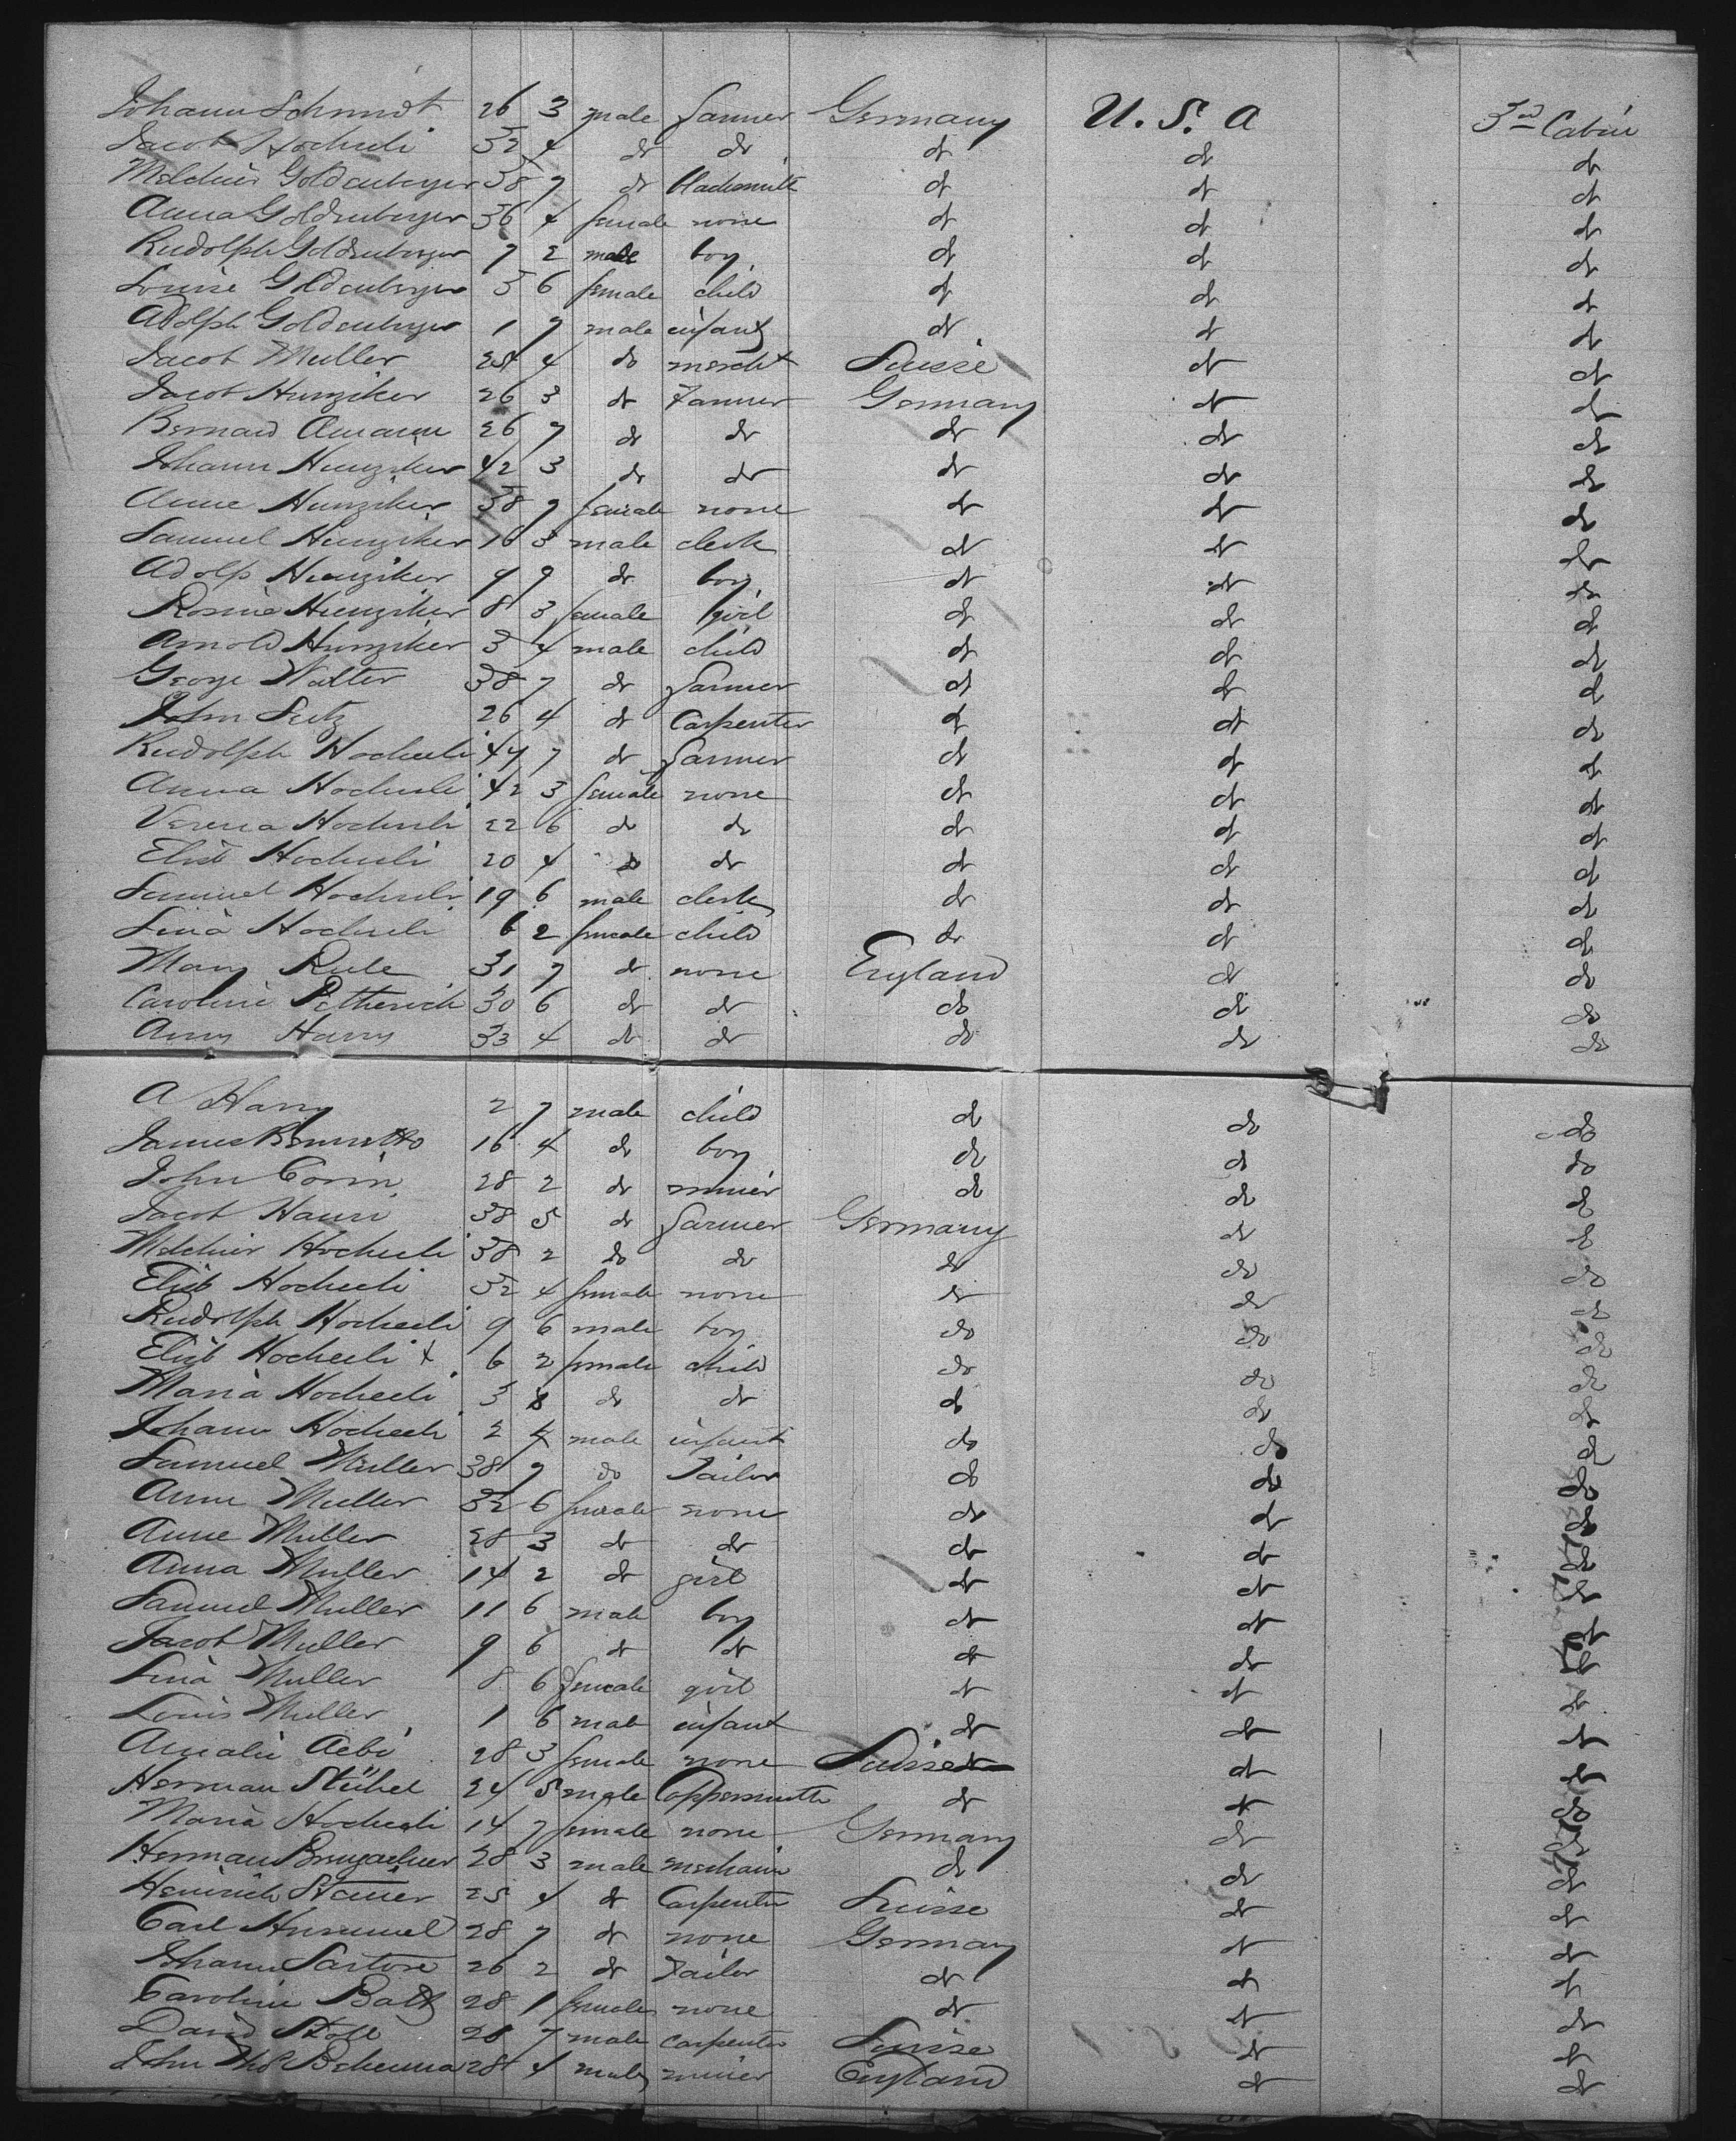 Johann Schmidt 26 3 male farmer Germany U. S. A 3rd Cabin
Jacob Hochuli 32 4 do do do do do
Melchior Goldenberger 38 7 do blacksmith do do do
Anna Goldenberger 36 4 female none do do do
Rudolph Goldenberger 7 2 male boy do do do
Louise Goldenberger 3 6 female child do do do
Adolph Goldenberger 1 7 male infant do do do
Jacob Muller 24 4 do mercht Suisse do do
Jacob Hunziker 26 3 do Farmer Germany do do
Bernard Amann 26 7 do do do do do
Johann Hunziker 42 3 do do do do do
Anne Hunziker 38 7 female none do do do
Samuel Hunziker 16 3 male clerk do do do
Adolp Hunziker 9 9 do boy do do do
Rosine Hunziker 8 3 female girl do do do
Arnold Hunziker 3 4 male child do do do
George Walter 38 7 do farmer do do do
John Seitz 26 4 do Carpenter do do do
Rudolph Hochuli 44 7 do farmer do do do
Anna Hochuli 42 3 female none do do do
Verena Hochuli 22 6 do do do do do
Elisb Hochuli 20 4 do do do do do
Samuel Hochuli 19 6 male clerk do do do
Lina Hochuli 6 2 female child do do do
Mary Rule 31 7 do none England do do
Caroline Petherick 30 6 do do do do do
Amy Harry 33 4 do do do do do
A Harry 2 7 male child do do do
James Bennetto 16 4 do boy do do do
John Corin 28 2 do miner do do do
Jacob Hauri 38 5 do farmer Germany do do
Melchior Hochuli 38 2 do do do do do
Elisb Hochuli 32 4 female none do do do
Rudolph Hochuli 9 6 male boy do do do
Elisb Hochuli x 6 2 female child do do do
Maria Hochuli 3 8 do do do do do
Johann Hochuli 2 4 male infant do do do
Samuel Muller 38 7 do Tailor do do do
Anne Muller 32 6 female none do do do
Anne Muller 28 3 do do do do do
Anna Muller 14 2 do girl do do do
Samuel Muller 11 6 male boy do do do
Jacob Muller 9 6 do do do do do
Lina Muller 8 6 female girl do do do
Louis Muller 1 6 male infant do do do
Amalie Aebi 28 3 female none Suisse do do
Herman Stühel 24 5 male Coppersmith do do do
Maria Hochuli 14 7 female none Germany do do
Herman 28 3 male mechanic do do do
Heinrich Stauer 25 4 do Carpenter Suisse do do
Carl Hummel 28 7 do none Germany do do
Johann Sartore 26 2 do Tailor do do do
Caroline Baltz 28 1 female none do do do
David Stoll 28 7 male carpenter Suisse do do
John Thos Behenna 28 4 male miner England do do